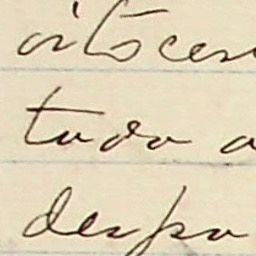 oitocen
tudo o
despo